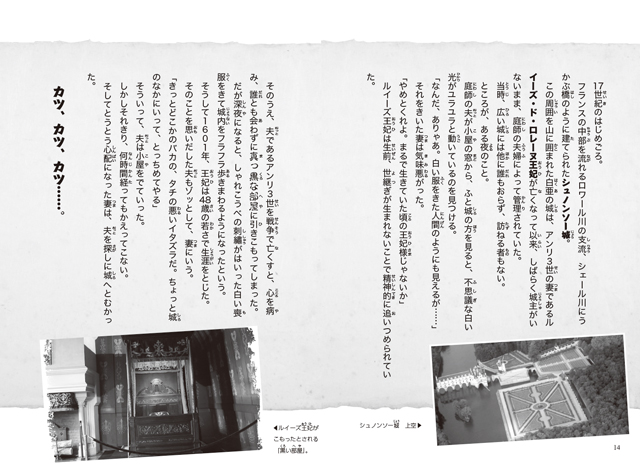 17世紀のはじめごろ。
フランスの中部を流れるロワール川の支流、シェール川にう
かぶ橋のように建てられたシュノンソー城。
この周囲を山に囲まれた白亜の城は、アンリ3世の妻であるル
イーズ・ド・ロレーヌ王妃が亡くなって以来、しばらく城主がい
ないまま、庭師の夫婦によって管理されていた。
当時、広い城には他に誰もおらず、訪ねる者もない。
ところが、ある夜のこと。
庭師の夫が小屋の窓から、ふと城の方を見ると、不思議な白い
光がユラユラと動いているのを見つける。
「なんだ、ありゃあ。白い服をきた人間のようにも見えるが……」
それをきいた妻は気味悪がった。
「やめとくれよ。まるで生きていた頃の王妃様じゃないか」
ルイーズ王妃は生前、世継ぎが生まれないことで精神的に追いつめられてい
た。
シュノンソー城 上空▶
14
そのうえ、夫であるアンリ3世を戦争で亡くすと、心を病
み、誰とも会わずに真っ黒な部屋に引きこもってしまった。
だが深夜になると、しゃれこうべの刺繍がはいった白い喪
服をきて城内をフラフラ歩きまわるようになったという。
そうして1601年、王妃は48歳の若さで生涯をとじた。
そのことを思いだした夫もゾッとして、妻にいう。
「きっとどこかのバカの、タチの悪いイタズラだ。ちょっと城
のなかにいって、とっちめてやる」
そういって、夫は小屋をでていった。
しかしそれきり、何時間経ってもかえってこない。
そしてとうとう心配になった妻は、夫を探しに城へとむかっ
た。
カツ、カツ、カツ……。
◀ルイーズ王妃が
こもったとされる
「黒い部屋」。